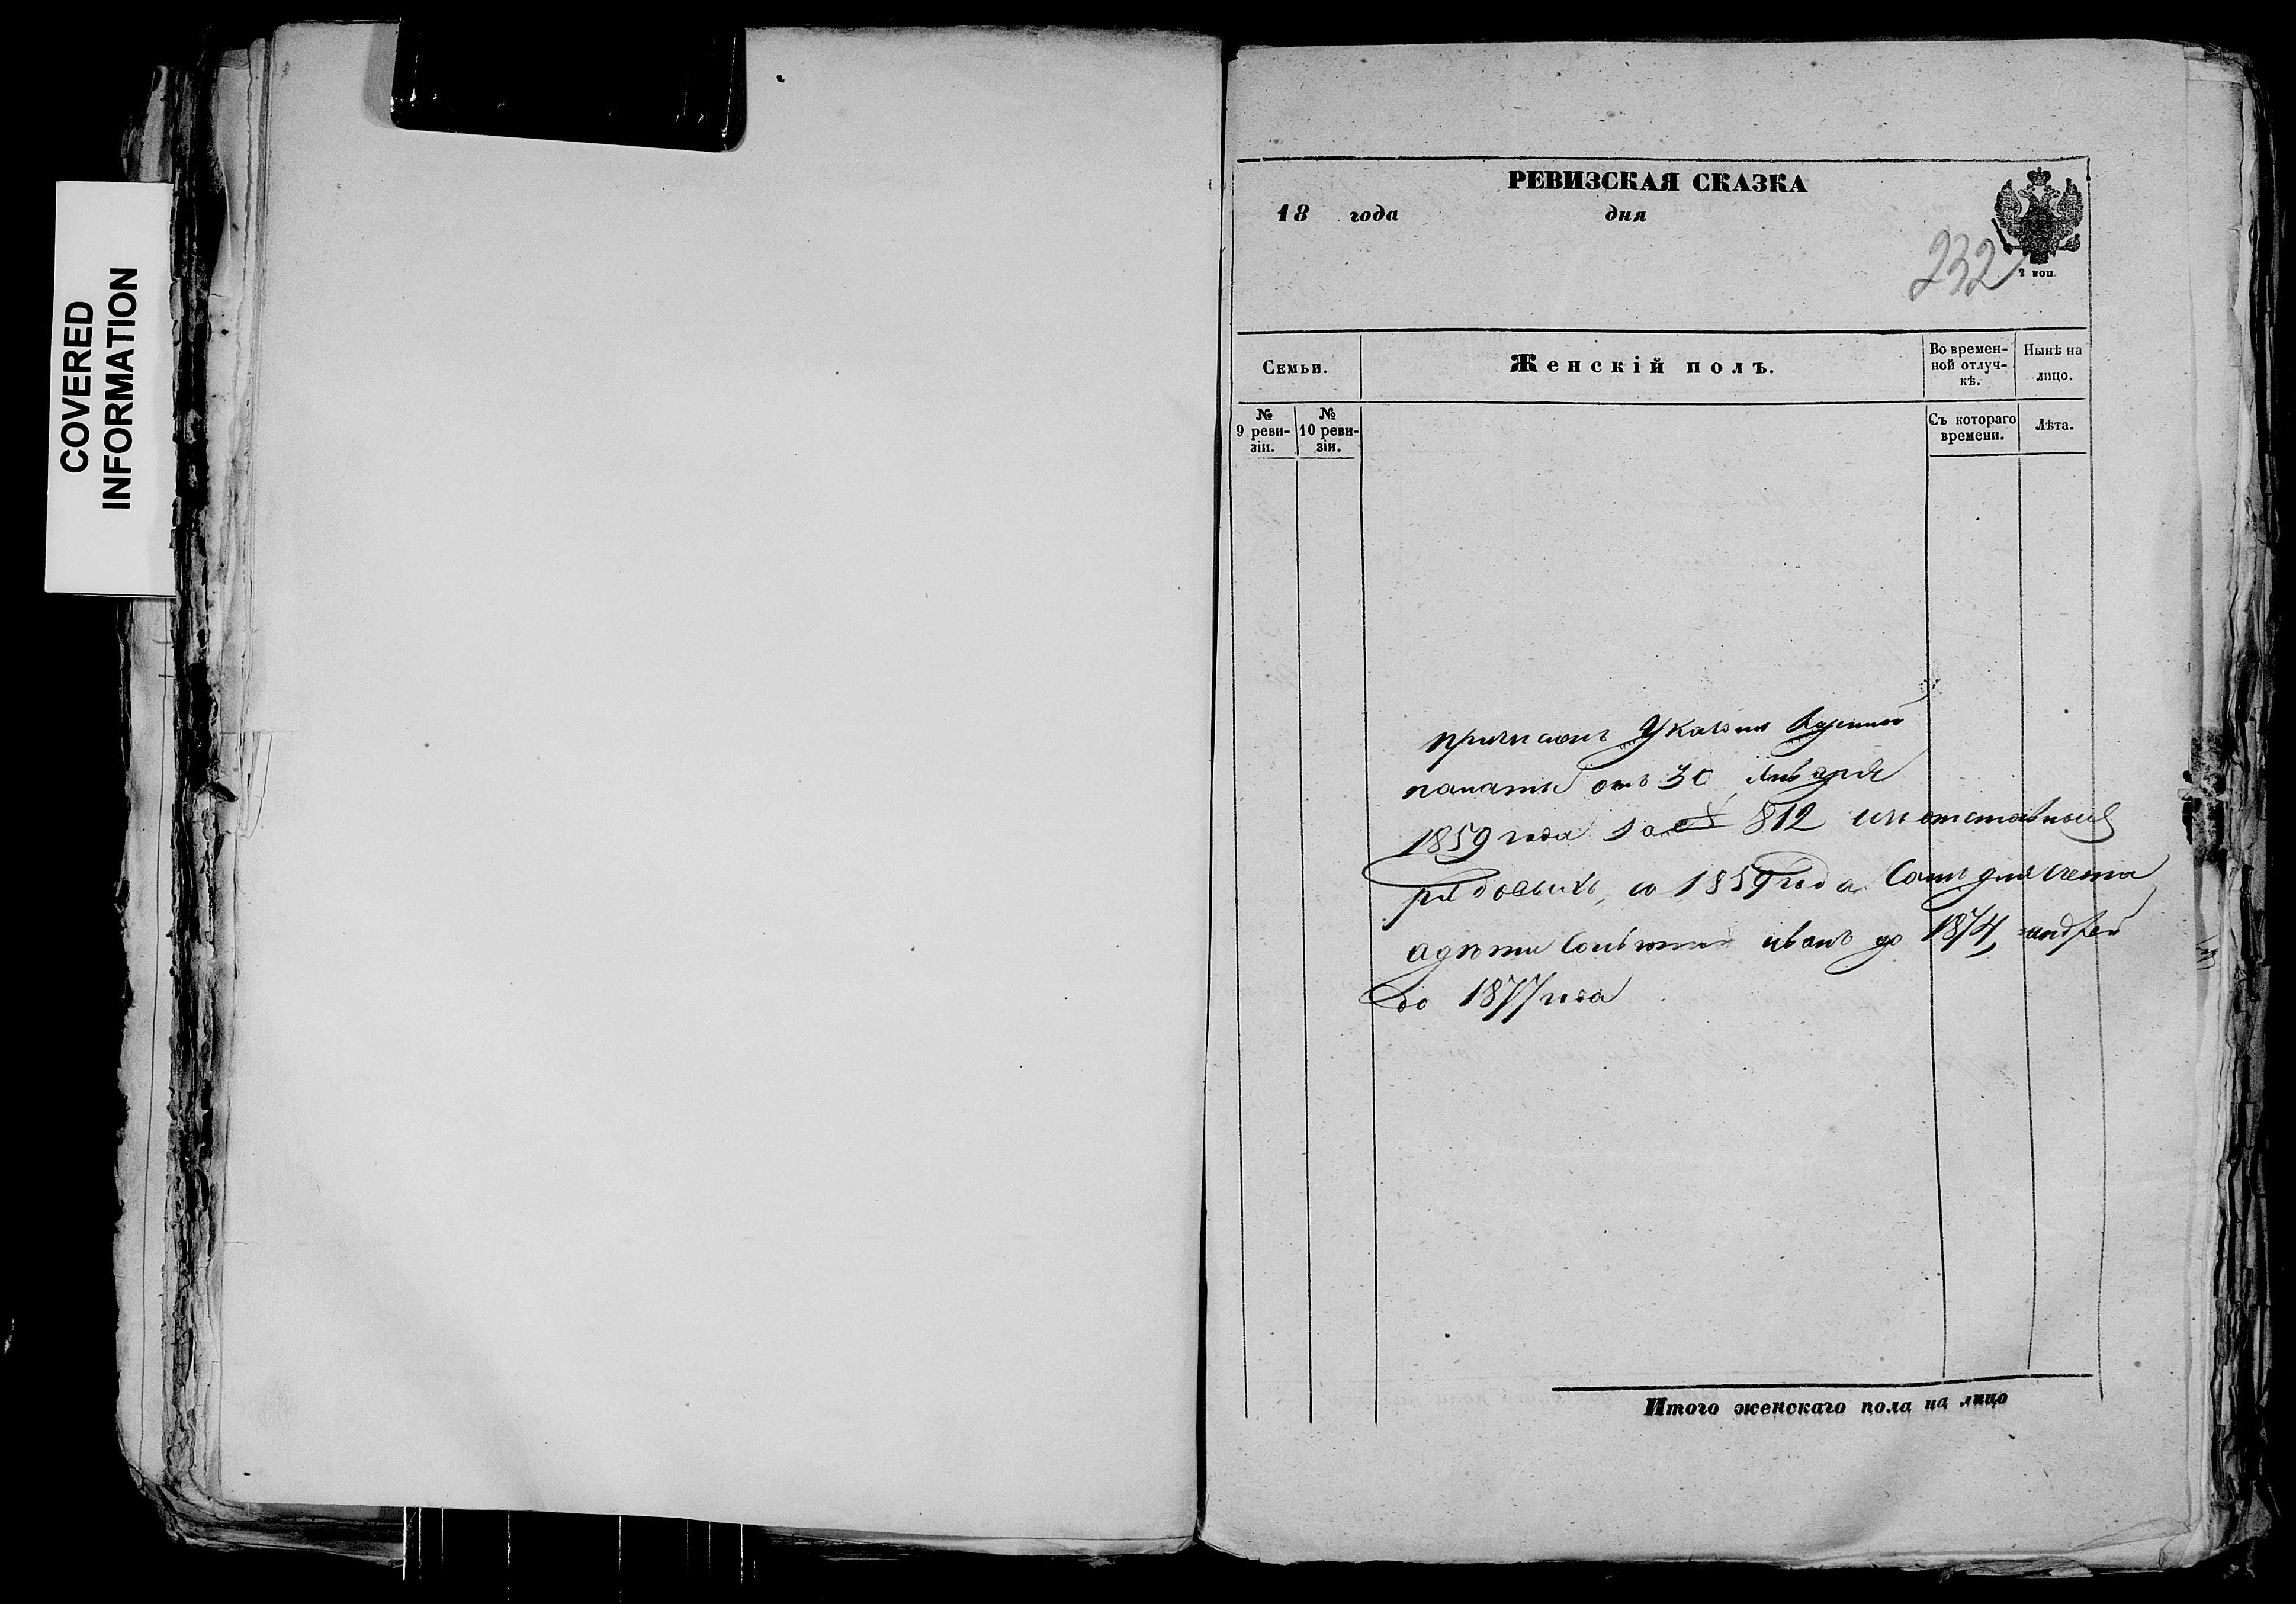 COVERED
INFORMATION
РЕВИЗСКАЯ СКАЗКА
18 года дня
232
2 коп.
Семьи.
Женскій полъ.
Во времен-
ной отлуч-
кѣ.
Нынѣ на
лицо.
№
9 реви-
зіи.
№
10 реви-
зіи.
Съ котораго
времени.
Лѣта.
причисленъ Указомъ Казенной
палаты отъ 30 Января
1859 года за № 812 изъ отставныхъ
рядовыхъ, со 1859 года Самъ для счета
а дѣти иванъ до 1874, андрей
до 1877 года
Итого женскаго пола на лицо